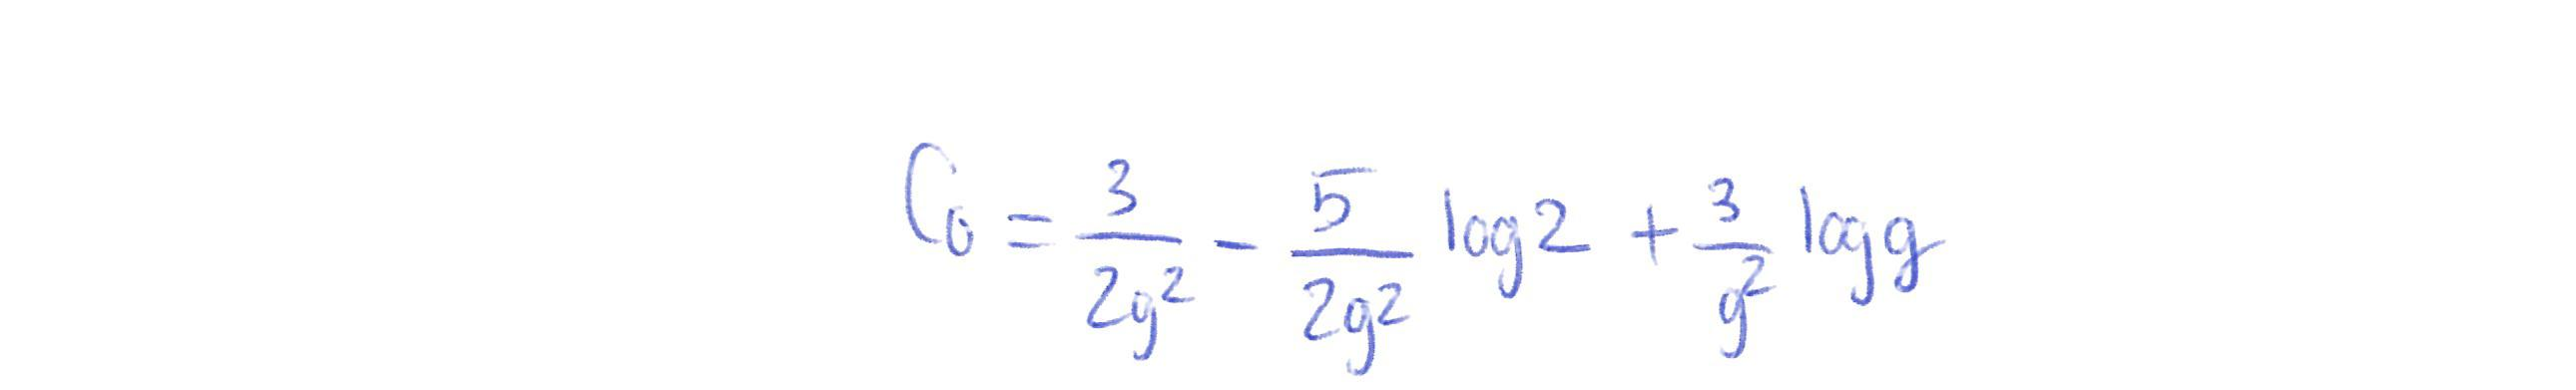 C₀ = 3/(2g²) − 5/(2g²) log 2 + 3/g² log g